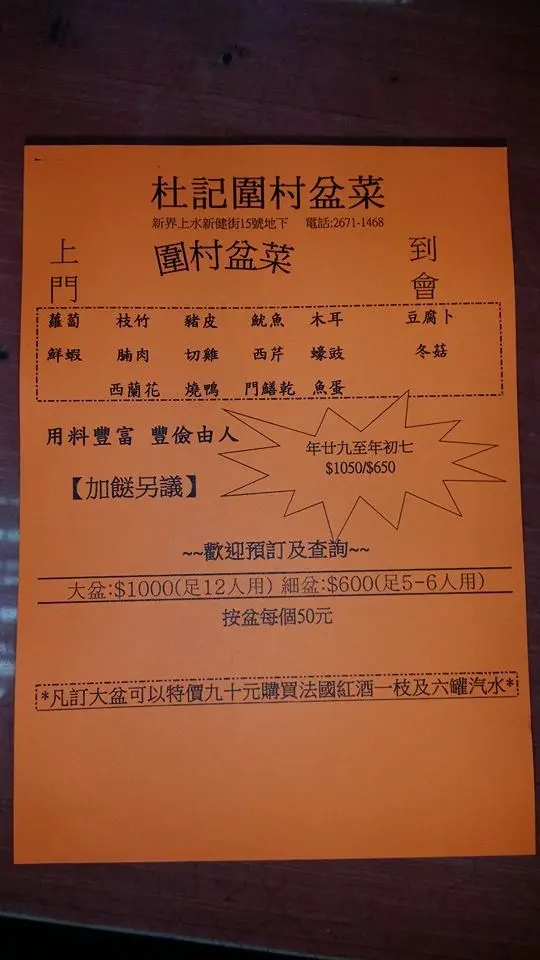 杜記圍村盆菜
新界上水新健街15號地下 電話:2671-1468
上門 圍村盆菜 到會
蘿蔔 枝竹 豬皮 魷魚 木耳 豆腐卜
鮮蝦 腩肉 切雞 西芹 蠔豉 冬菇
西蘭花 燒鴨 門鱔乾 魚蛋
用料豐富 豐儉由人
年廿九至年初七
$1050/$650
【加餸另議】
~~歡迎預訂及查詢~~
大盆:$1000(足12人用) 細盆:$600(足5-6人用)
按盆每個50元
*凡訂大盆可以特價九十元購買法國紅酒一枝及六罐汽水*